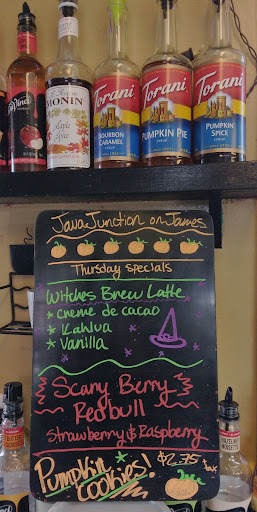 DaVinci
MONIN
Maple Spice
TORANI
BOURBON
CARAMEL
SYRUP
TORANI
PUMPKIN PIE
SYRUP
TORANI
PUMPKIN
SPICE
SYRUP
Java Junction on James
Thursday specials
Witches Brew Latte
* creme de cacao
* Kahlua
* Vanilla
Scary Berry
Redbull
Strawberry & Raspberry
Pumpkin $2.75 + tax
cookies!
HAZELNUT